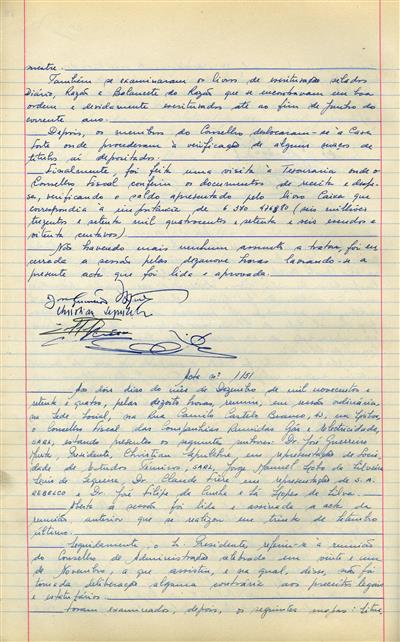 mestre.
Também se examinaram os livros de escrituração selados
Diário, Razão e Balancete do Razão que se encontravam em boa
ordem e devidamente escriturados até ao fim de Junho do
corrente ano.
Depois, os membros do Conselho deslocaram-se à Casa
forte onde procederam à verificação de alguns maços de
títulos aí depositados.
Finalmente, foi feita uma visita à Tesouraria onde o
Conselho Fiscal conferiu os documentos de receita e despe-
sa, verificando o saldo apresentado pelo livro Caixa que
correspondia à importância de 6 370 476$80 (seis milhões
trezentos e setenta mil quatrocentos e setenta e seis escudos e
oitenta centavos)
Não havendo mais nenhum assunto a tratar, foi en-
cerrada a sessão pelas dezanove horas lavrando-se a
presente acta que foi lida e aprovada.
Acta nº 1151
Aos dois dias do mês de Dezembro de mil novecentos e
setenta e quatro, pelas dezoito horas, reuniu, em sessão ordinária,
na Sede Social, na Rua Camilo Castelo Branco, 43, em Lisboa,
o Conselho Fiscal das Companhias Reunidas Gás e Electricidade,
SARL, estando presentes os seguintes senhores: Dr. José Guerreiro
Presidente, Christian Lepulchre, em representação de Socie-
dade de Estudos Técnicos, SARL, Jorge Manuel Lobo da Silveira
Dr. Claude Frère em representação de S.A.
REBELCO e Dr. José Filipe da Cunha e Sá Lopes da Silva.
Aberta a sessão foi lida e assinada a acta da
reunião anterior que se realizou em trinta de Setembro
último.
Seguidamente, o Sr. Presidente referiu-se à reunião
do Conselho de Administração celebrada em vinte e um
de Novembro, a que assistiu, e na qual, disse, não foi
tomada deliberação alguma contrária aos preceitos legais
e estatutários.
Foram examinados, depois, os seguintes mapas: